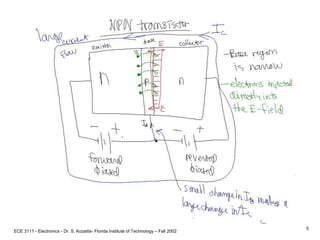 NPN transistor
large current flow
I_C
emitter
base
collector
E
n
P
n
E
- Base region
is narrow
- electrons injected
directly into
the E-field
- +
I_B
- +
forward
biased
reversed
biased
small change in I_B makes a
large change in I_C
ECE 3111 - Electronics - Dr. S. Kozaitis- Florida Institute of Technology – Fall 2002
5